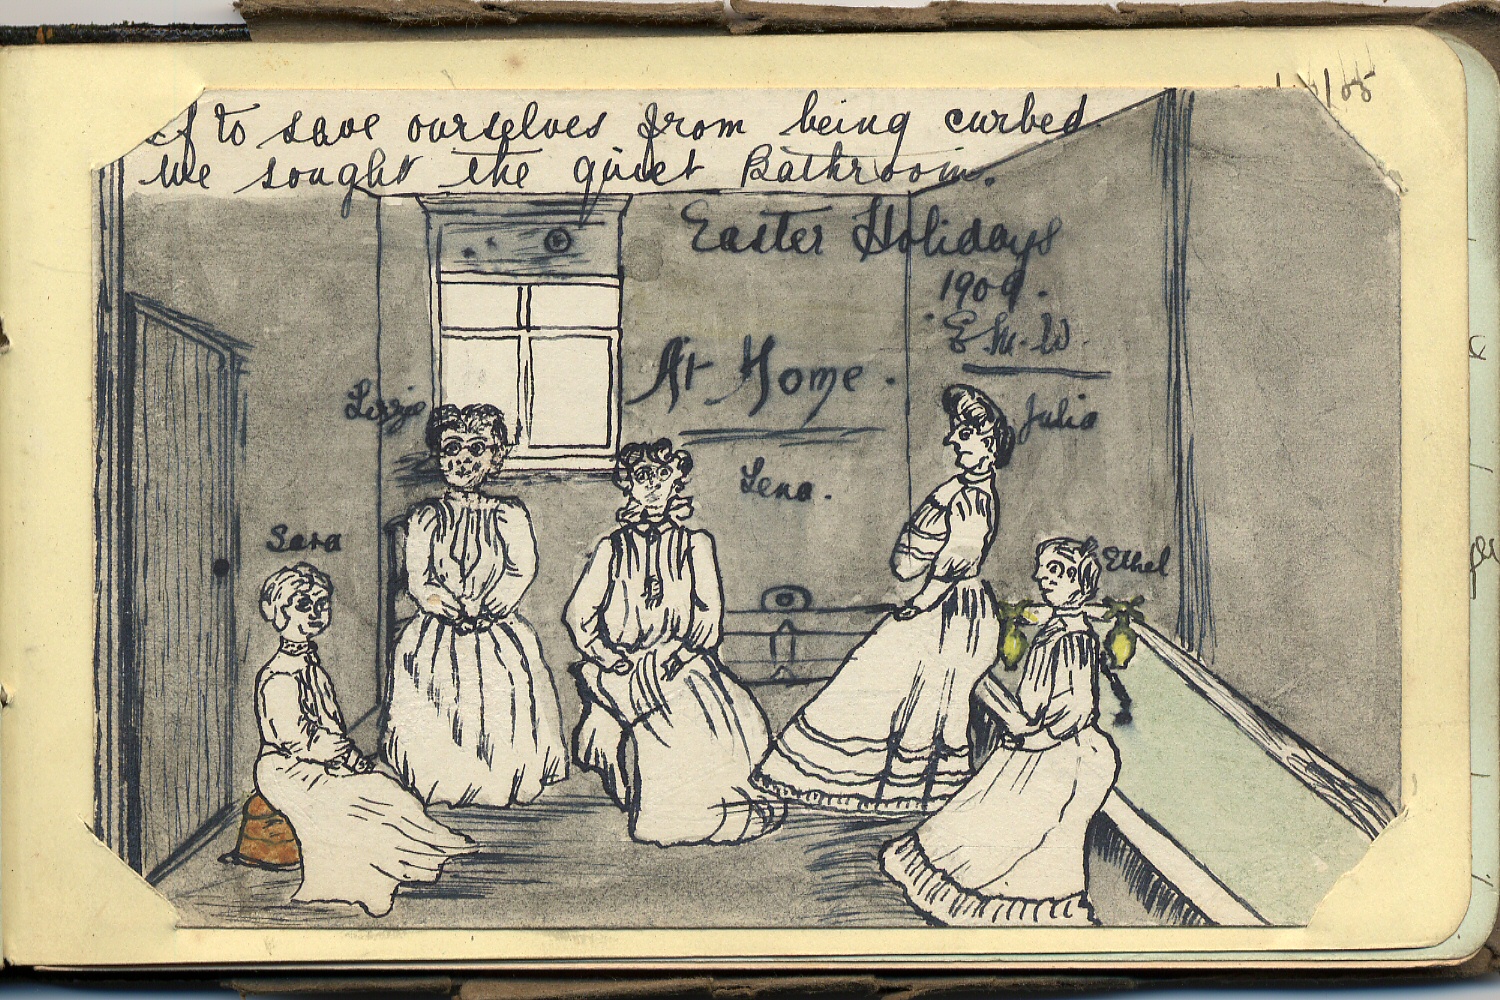 If to save ourselves from being curbed
We sought the quiet Bathroom.
Easter Holidays
1909.
E.M.W.
At Home.
Lizzie
Julia
Lena.
Sara
Ethel